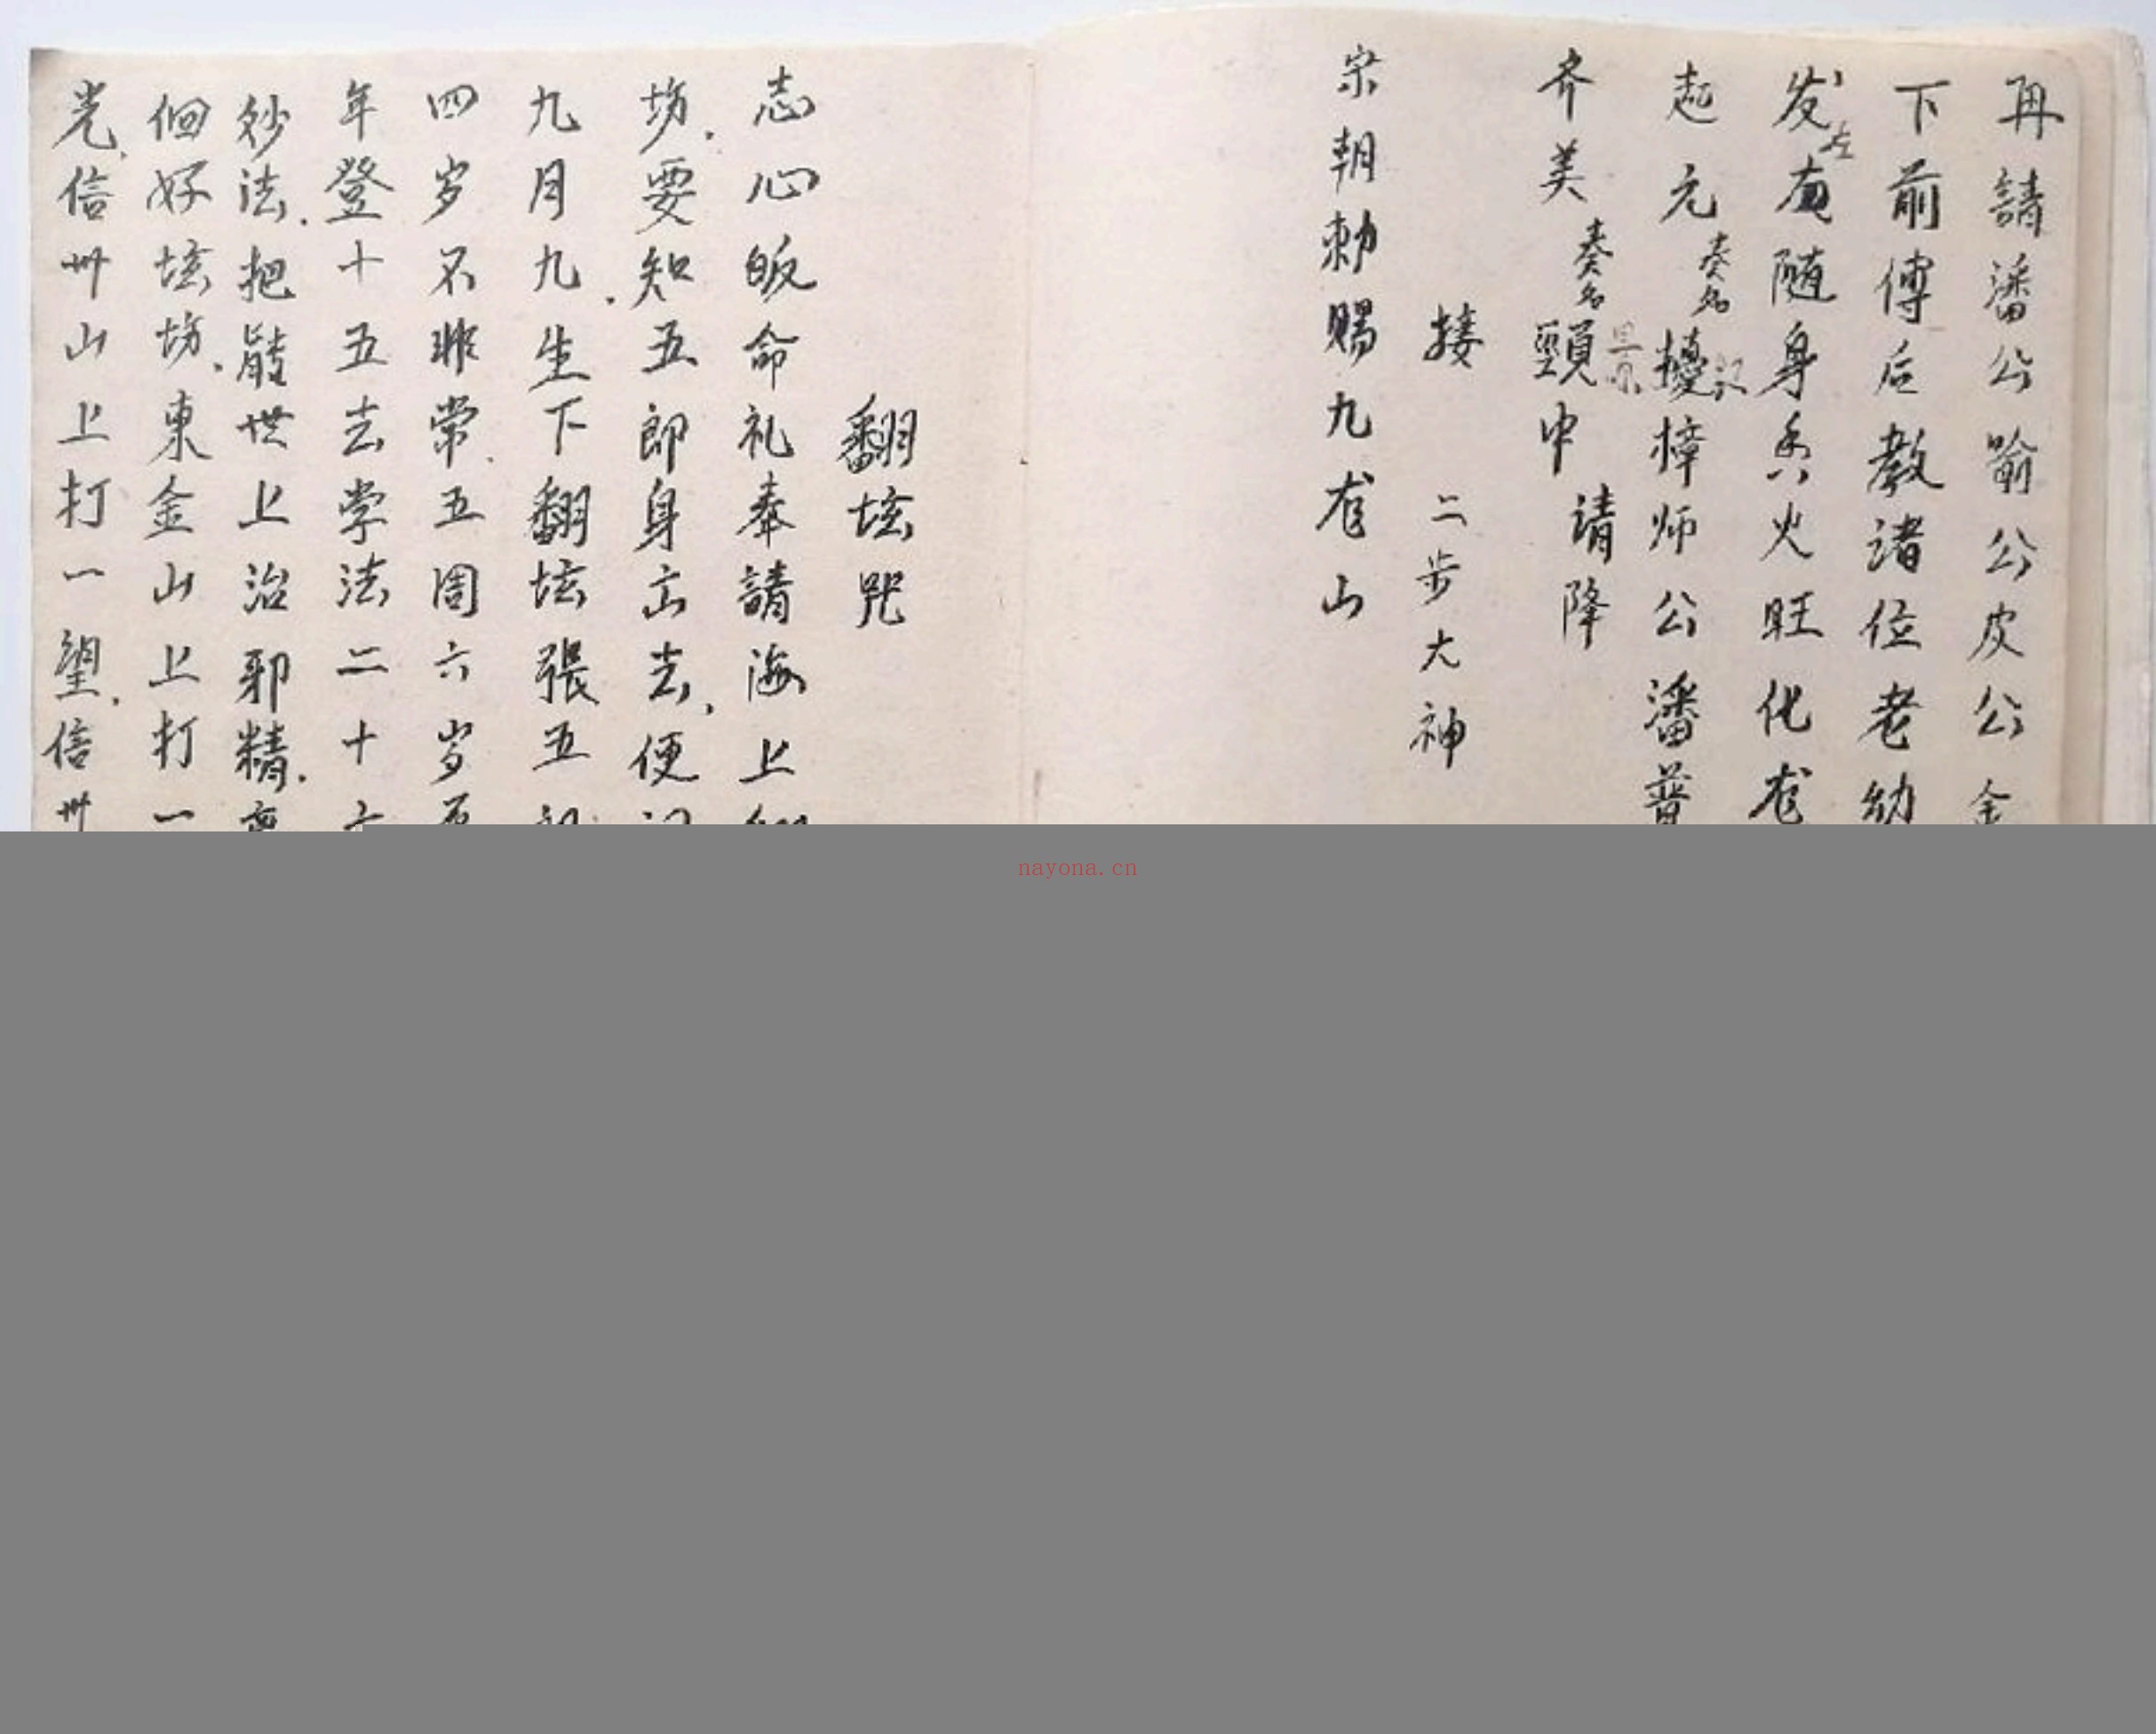 再請潘公喻公皮公金
下前傅后教诸位老幼
发左右随身香火旺化龙
起元奏名
樟师公潘普
齐美奏名
中
请降
接 二步大神
宗朝勅赐九龙山
翻坛咒
志心皈命礼奉請海上
坊.要知五郎身去,便
九月九.生下翻坛張五
四岁不非常.五周六岁
年登十五去学法二十
妙法.把能世上治邪精.
個好坛坊.東金山上打一
光.信卅山上打一望.信卅
nayona.cn